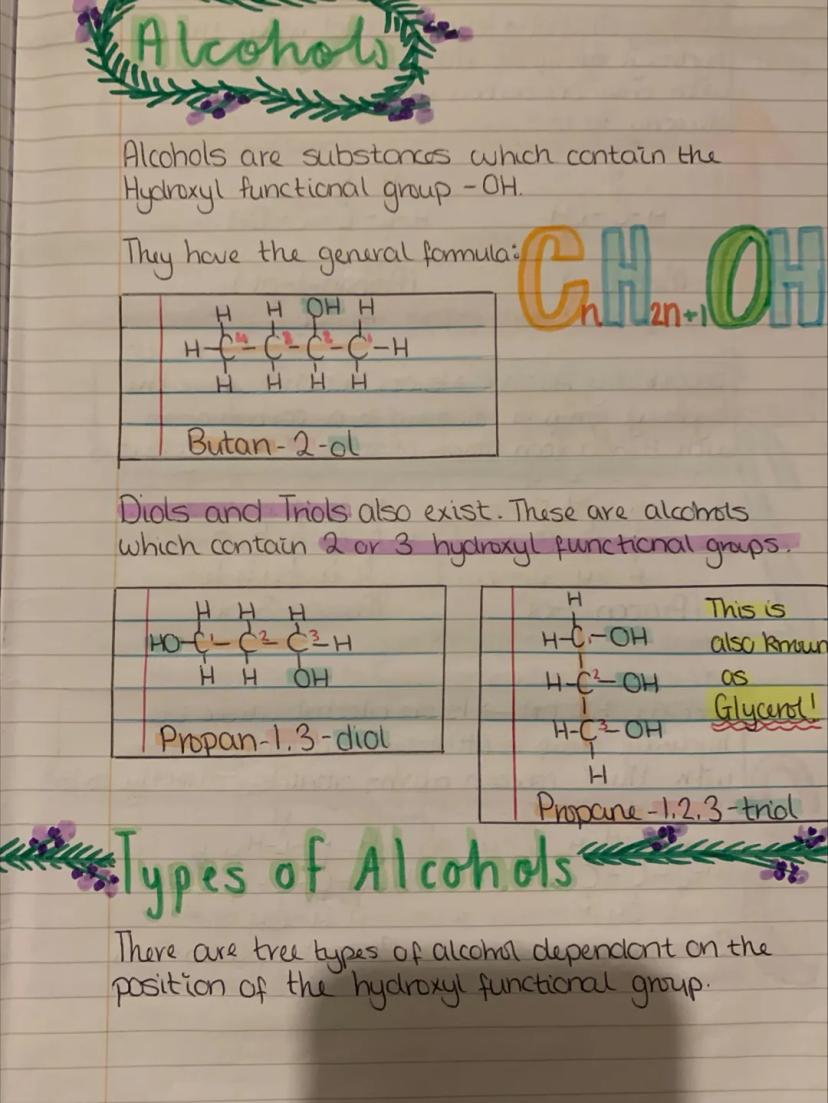 Alcohols
Alcohols are substances which contain the
Hydroxyl functional group -OH.
They have the general formula: CnH2n+1OH
H H OH H
H-C⁴-C³-C²-C¹-H
H H H H
Butan-2-ol
Diols and Triols also exist. These are alcohols
which contain 2 or 3 hydroxyl functional groups.
H H H
HO-C¹-C²-C³-H
H H OH
Propan-1,3-diol
H
H-C¹-OH
H-C²-OH
H-C³-OH
H
Propane-1,2,3-triol
This is
also known
as
Glycerol!
Types of Alcohols
There are tree types of alcohol dependant on the
position of the hydroxyl functional group.